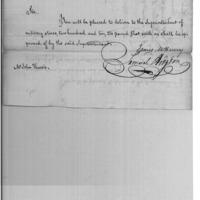 Sir
You will be pleased to deliver to the Superintendent of
military stores two hundred and ten the pound that such as shall be ap
proved of by the said Superintendent
James McHenry
Samuel Hodgdon
Mr John Harris